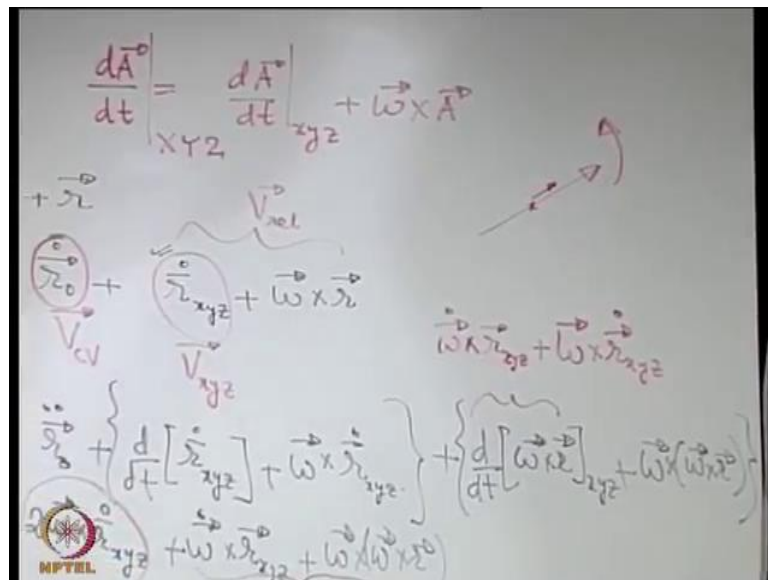 dA⃗/dt |XYZ = dA⃗/dt |xyz + ω⃗ × A⃗
+ r⃗
V⃗rel
ṙ⃗₀ + ṙ⃗xyz + ω⃗ × r⃗
V⃗CV V⃗xyz
ω̇⃗ × r⃗xyz + ω⃗ × ṙ⃗xyz
r̈⃗₀ + { d/dt [ṙ⃗xyz] + ω⃗ × ṙ⃗xyz } + { d/dt [ω⃗ × r⃗]xyz + ω⃗ × (ω⃗ × r⃗) }
ṙ⃗xyz + ω̇⃗ × r⃗xyz + ω⃗ × (ω⃗ × r⃗)
NPTEL